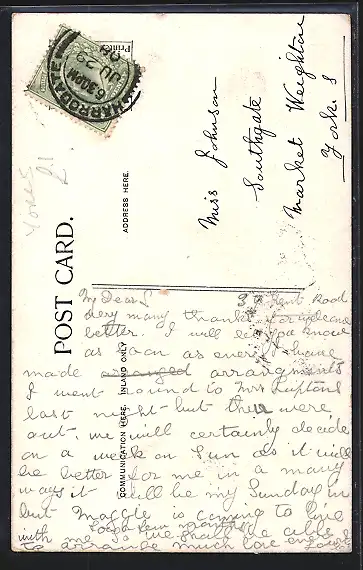 POST CARD.
ADDRESS HERE.
COMMUNICATION HERE. INLAND ONLY
HARROGATE
6.30 PM
JU 29
09
Miss Johnson
Southgate
Market Weighton
Yorks
My Dear L
Kent Road
Very many thanks for welcome
letter. I will let you know
as soon as ever I have
made arranged arrangements
I went round to Mrs Liptons
last night but they were
out. we will certainly decide
on a week on Sun as it will
be better for me in a many
ways it will be my Sunday in
but Maggie is coming to live
with me for a few months
so we shall be able
to arrange much